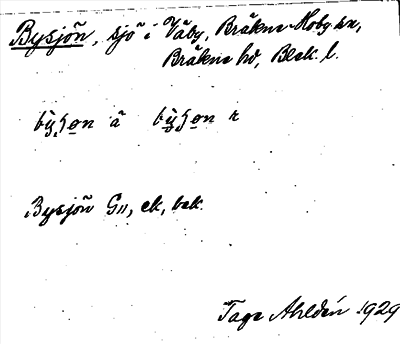 Bysjön, sjö i Väby, Bräkne-Hoby sn,
Bräkne hd, Blek. l.
a r
Bysjön G11, ek, bek.
Tage Ahldén 1929